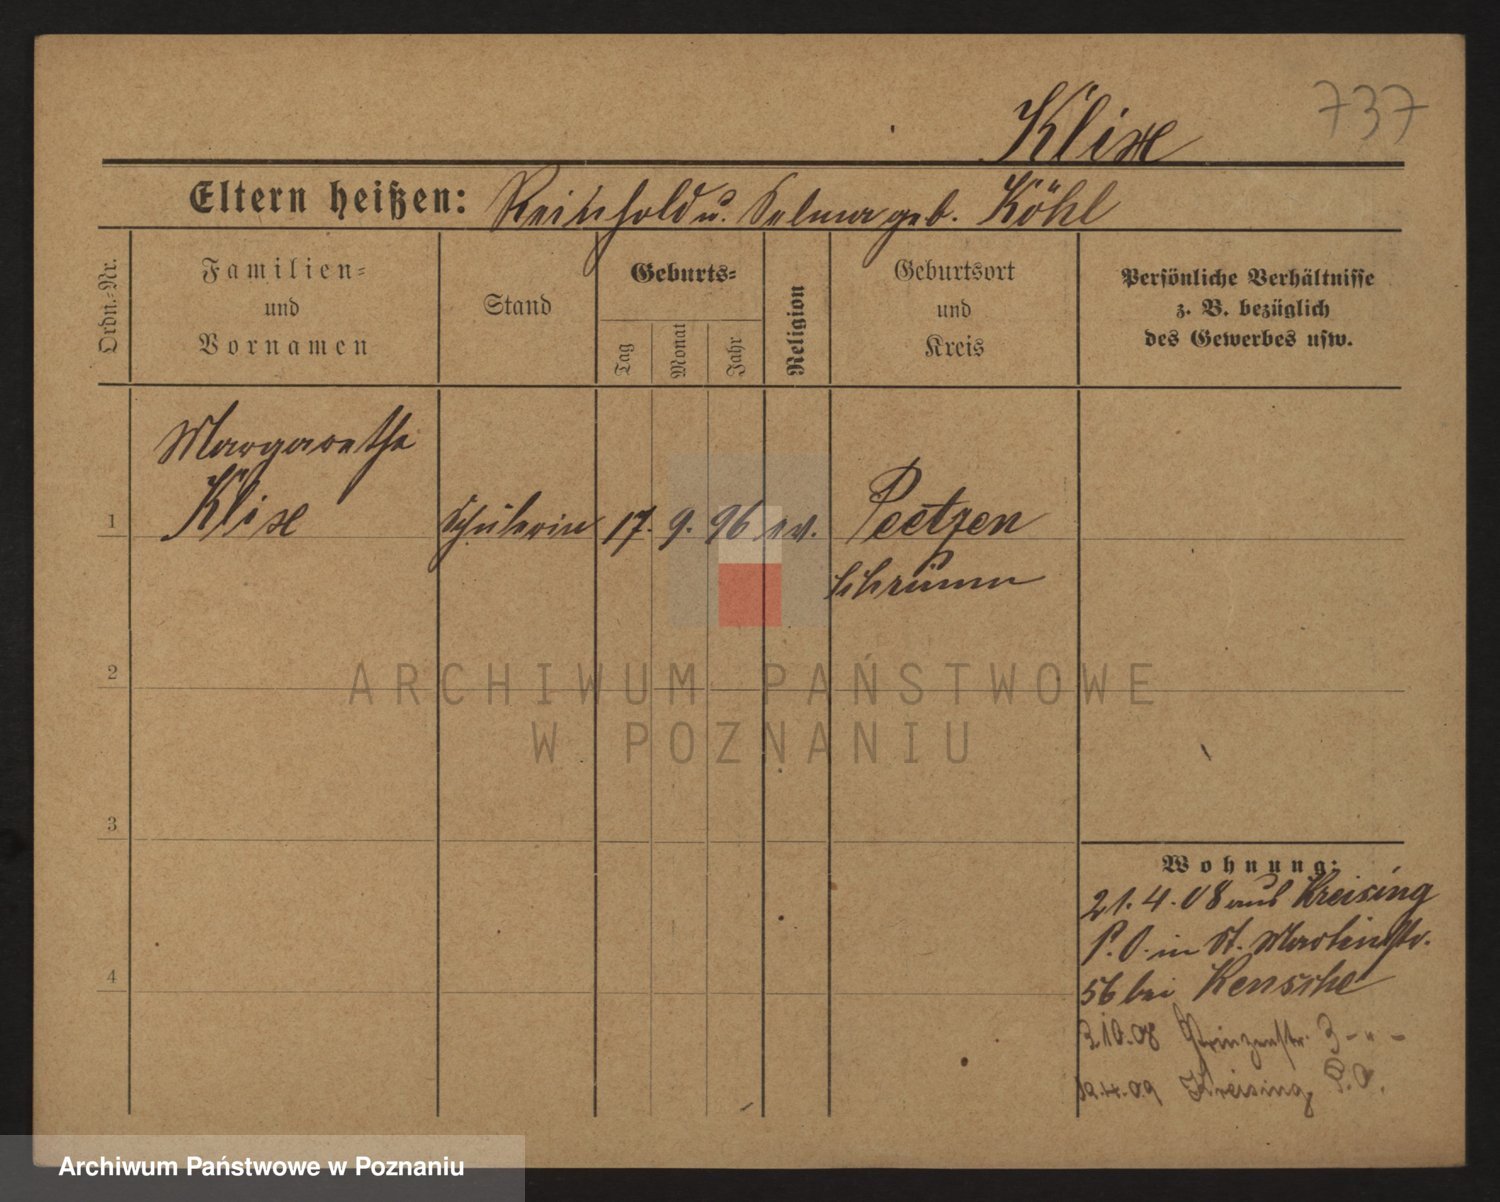 737
Klixe
Eltern heißen: Reinhold u. Selma geb. Köhl
Ordn.-Nr.
Familien-
und
Vornamen
Stand
Geburts-
Tag
Monat
Jahr
Religion
Geburtsort
und
Kreis
Persönliche Verhältnisse
z. B. bezüglich
des Gewerbes usw.
Margarethe
1 Klixe Schülerin 17. 9. 96 ev. Peetzen
Schrimm
2
3
4
Wohnung:
21.4.08 aus Kreising
P.O. in St. Martinstr.
56 bei Rensche
3.10.08 Prinzenstr. 3 - " -
12.4.09 Kreising, P.O.
ARCHIWUM PAŃSTWOWE
W POZNANIU
Archiwum Państwowe w Poznaniu